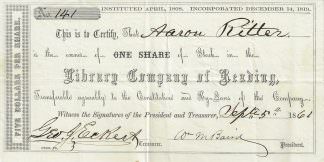 INSTITUTED APRIL, 1808. INCORPORATED DECEMBER 14, 1819.
No. 141
This is to Certify, That Aaron Ritter
is the owner of ONE SHARE of Stock in the
Library Company of Reading,
Transferable agreeably to the Constitution and By-Laws of the Company.
Witness the Signatures of the President and Treasurer, Sept 5th 1861
Geo J Eckert Treasurer. Wm Baird President.
FIVE DOLLARS PER SHARE.